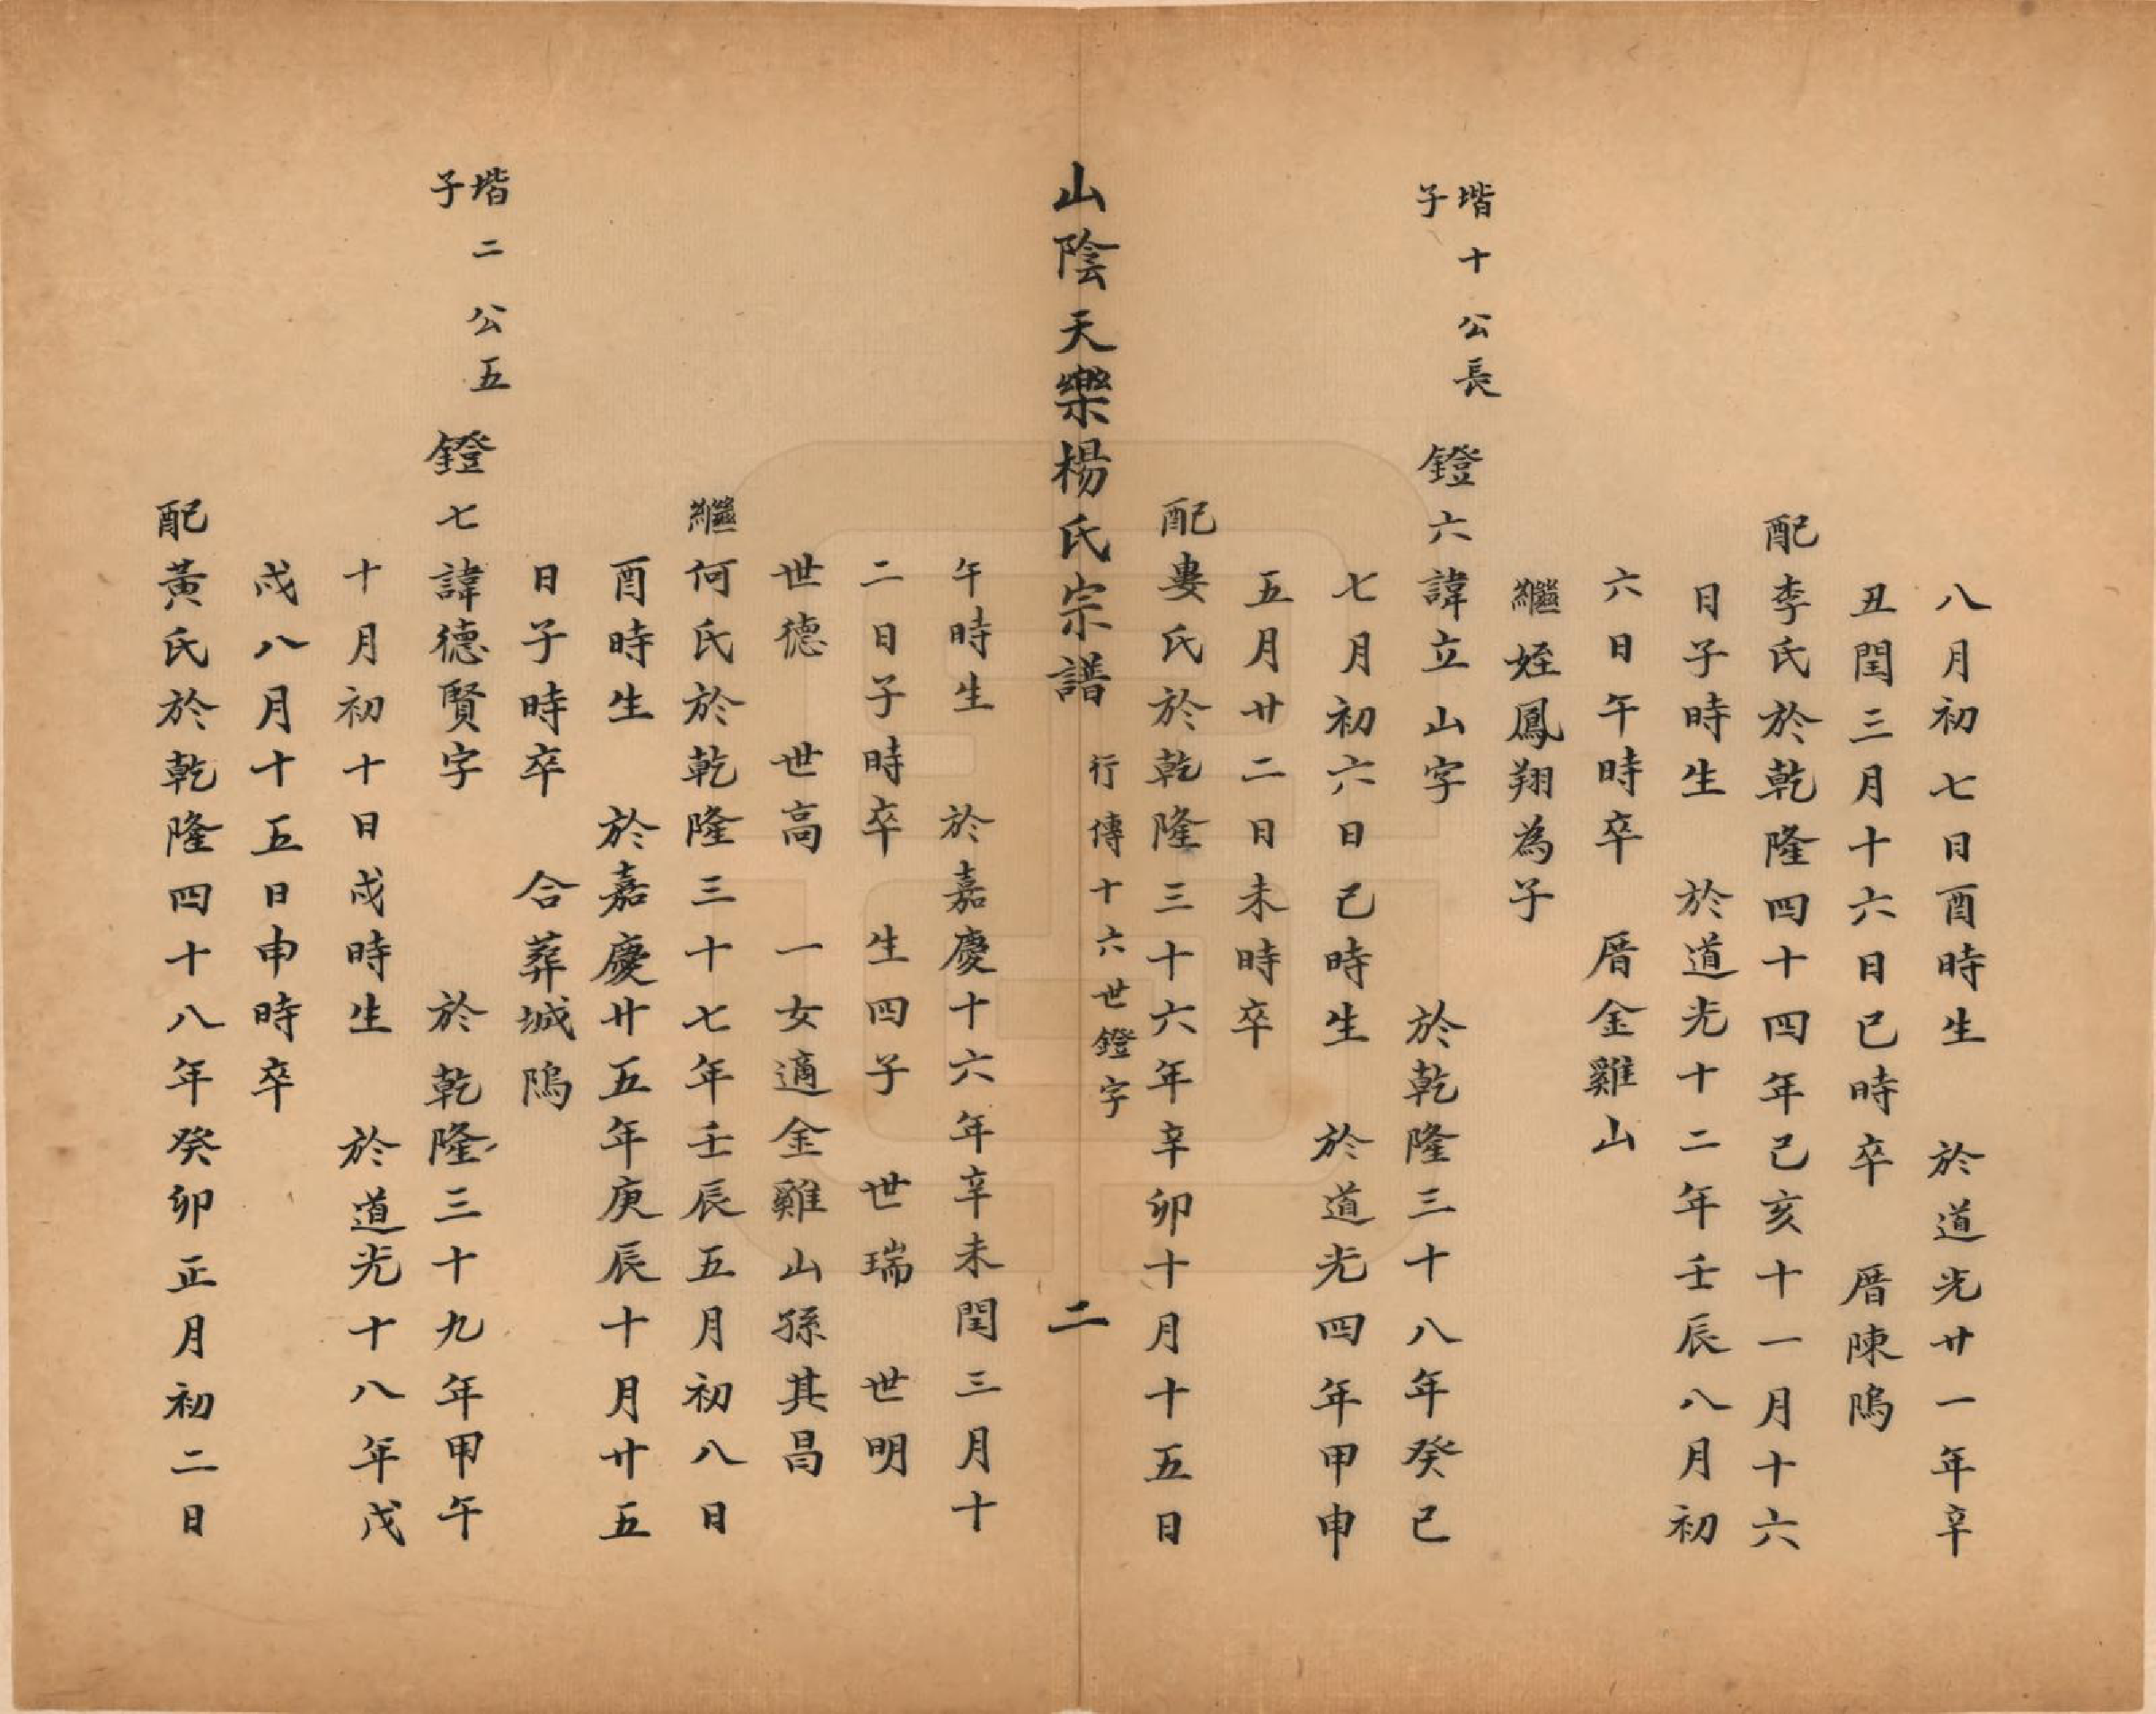 八月初七日酉時生　於道光廿一年辛
丑閏三月十六日巳時卒　厝陳塢
配李氏於乾隆四十四年己亥十一月十六
日子時生　於道光十二年壬辰八月初
六日午時卒　厝金雞山
繼姪鳳翔為子
堦十公長
子
鐙六諱立山字　於乾隆三十八年癸巳
七月初六日己時生　於道光四年甲申
五月廿二日未時卒
配婁氏於乾隆三十六年辛卯十月十五日
山陰天樂楊氏宗譜　行傳十六世鐙字　二
午時生　於嘉慶十六年辛未閏三月十
二日子時卒　生四子　世瑞　世明
世德　世高　一女適金雞山孫其昌
繼何氏於乾隆三十七年壬辰五月初八日
酉時生　於嘉慶廿五年庚辰十月廿五
日子時卒　合葬城塢
堦二公五
子
鐙七諱德賢字　於乾隆三十九年甲午
十月初十日戌時生　於道光十八年戊
戌八月十五日申時卒
配黃氏於乾隆四十八年癸卯正月初二日